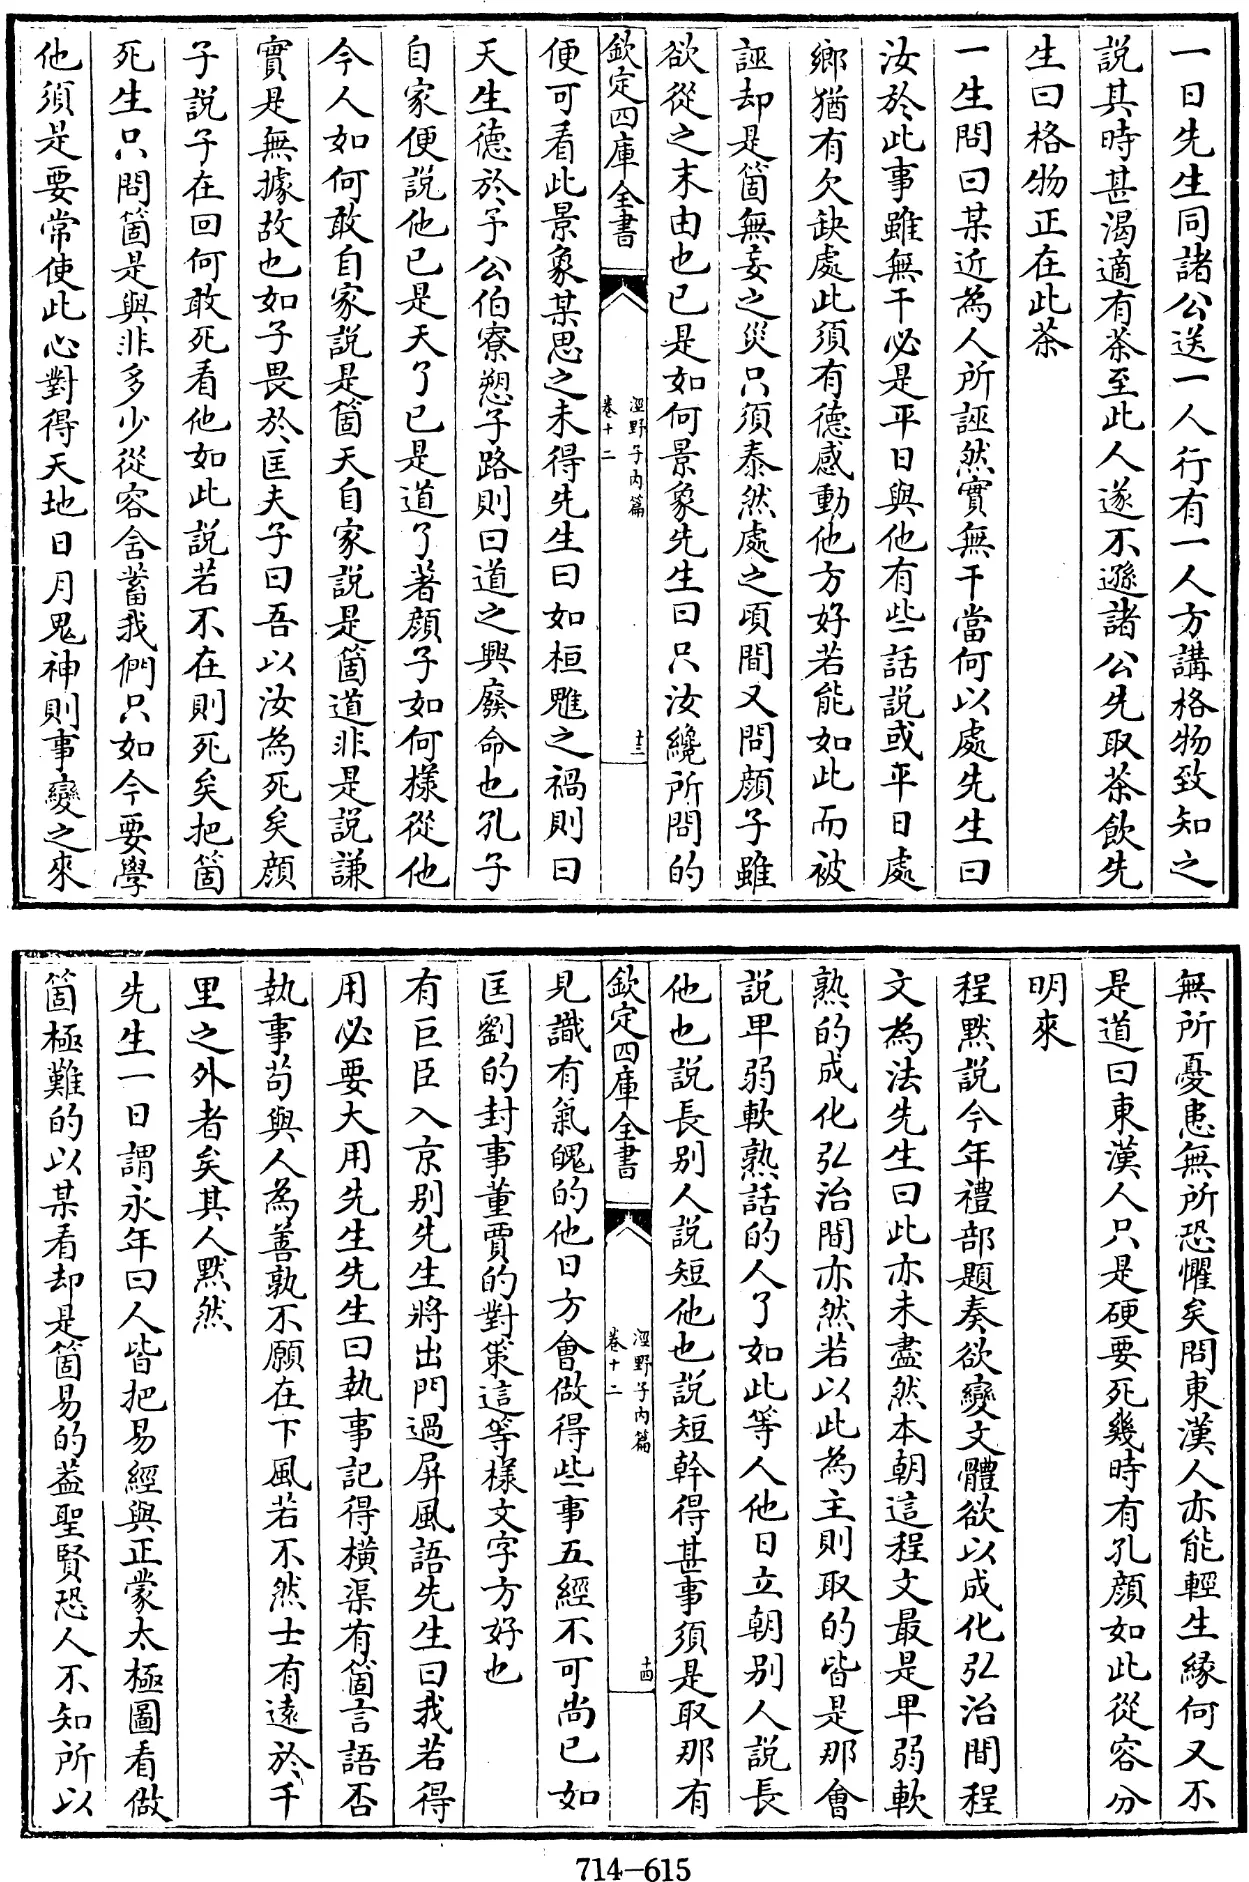 一日先生同諸公送一人行有一人方講格物致知之
說其時甚渴適有茶至此人遂不遜諸公先取茶飲先
生曰格物正在此茶
一生問曰某近為人所誣然實無干當何以處先生曰
汝於此事雖無干必是平日與他有些話說或平日處
鄉猶有欠缺處此須有德感動他方好若能如此而被
誣却是箇無妄之災只須泰然處之頃間又問顔子雖
欲從之末由也已是如何景象先生曰只汝纔所問的
欽定四庫全書
涇野子內篇
卷十二
十三
便可看此景象某思之未得先生曰如桓魋之禍則曰
天生德於予公伯寮愬子路則曰道之興廢命也孔子
自家便說他已是天了已是道了著顔子如何樣從他
今人如何敢自家說是箇天自家說是箇道非是說謙
實是無據故也如子畏於匡夫子曰吾以汝為死矣顔
子說子在回何敢死看他如此說若不在則死矣把箇
死生只問箇是與非多少從容含蓄我們只如今要學
他須是要常使此心對得天地日月鬼神則事變之來
無所憂患無所恐懼矣問東漢人亦能輕生緣何又不
是道曰東漢人只是硬要死幾時有孔顔如此從容分
明來
程默說今年禮部題奏欲變文體欲以成化弘治間程
文為法先生曰此亦未盡然本朝這程文最是卑弱軟
熟的成化弘治間亦然若以此為主則取的皆是那會
說卑弱軟熟話的人了如此等人他日立朝別人說長
他也說長別人說短他也說短幹得甚事須是取那有
欽定四庫全書
涇野子內篇
卷十二
十四
見識有氣魄的他日方會做得些事五經不可尚已如
匡劉的封事董賈的對策這等樣文字方好也
有巨臣入京別先生將出門過屏風語先生曰我若得
用必要大用先生先生曰執事記得横渠有箇言語否
執事苟與人為善孰不願在下風若不然士有遠於千
里之外者矣其人默然
先生一日謂永年曰人皆把易經與正蒙太極圖看做
箇極難的以某看却是箇易的葢聖賢恐人不知所以
714-615